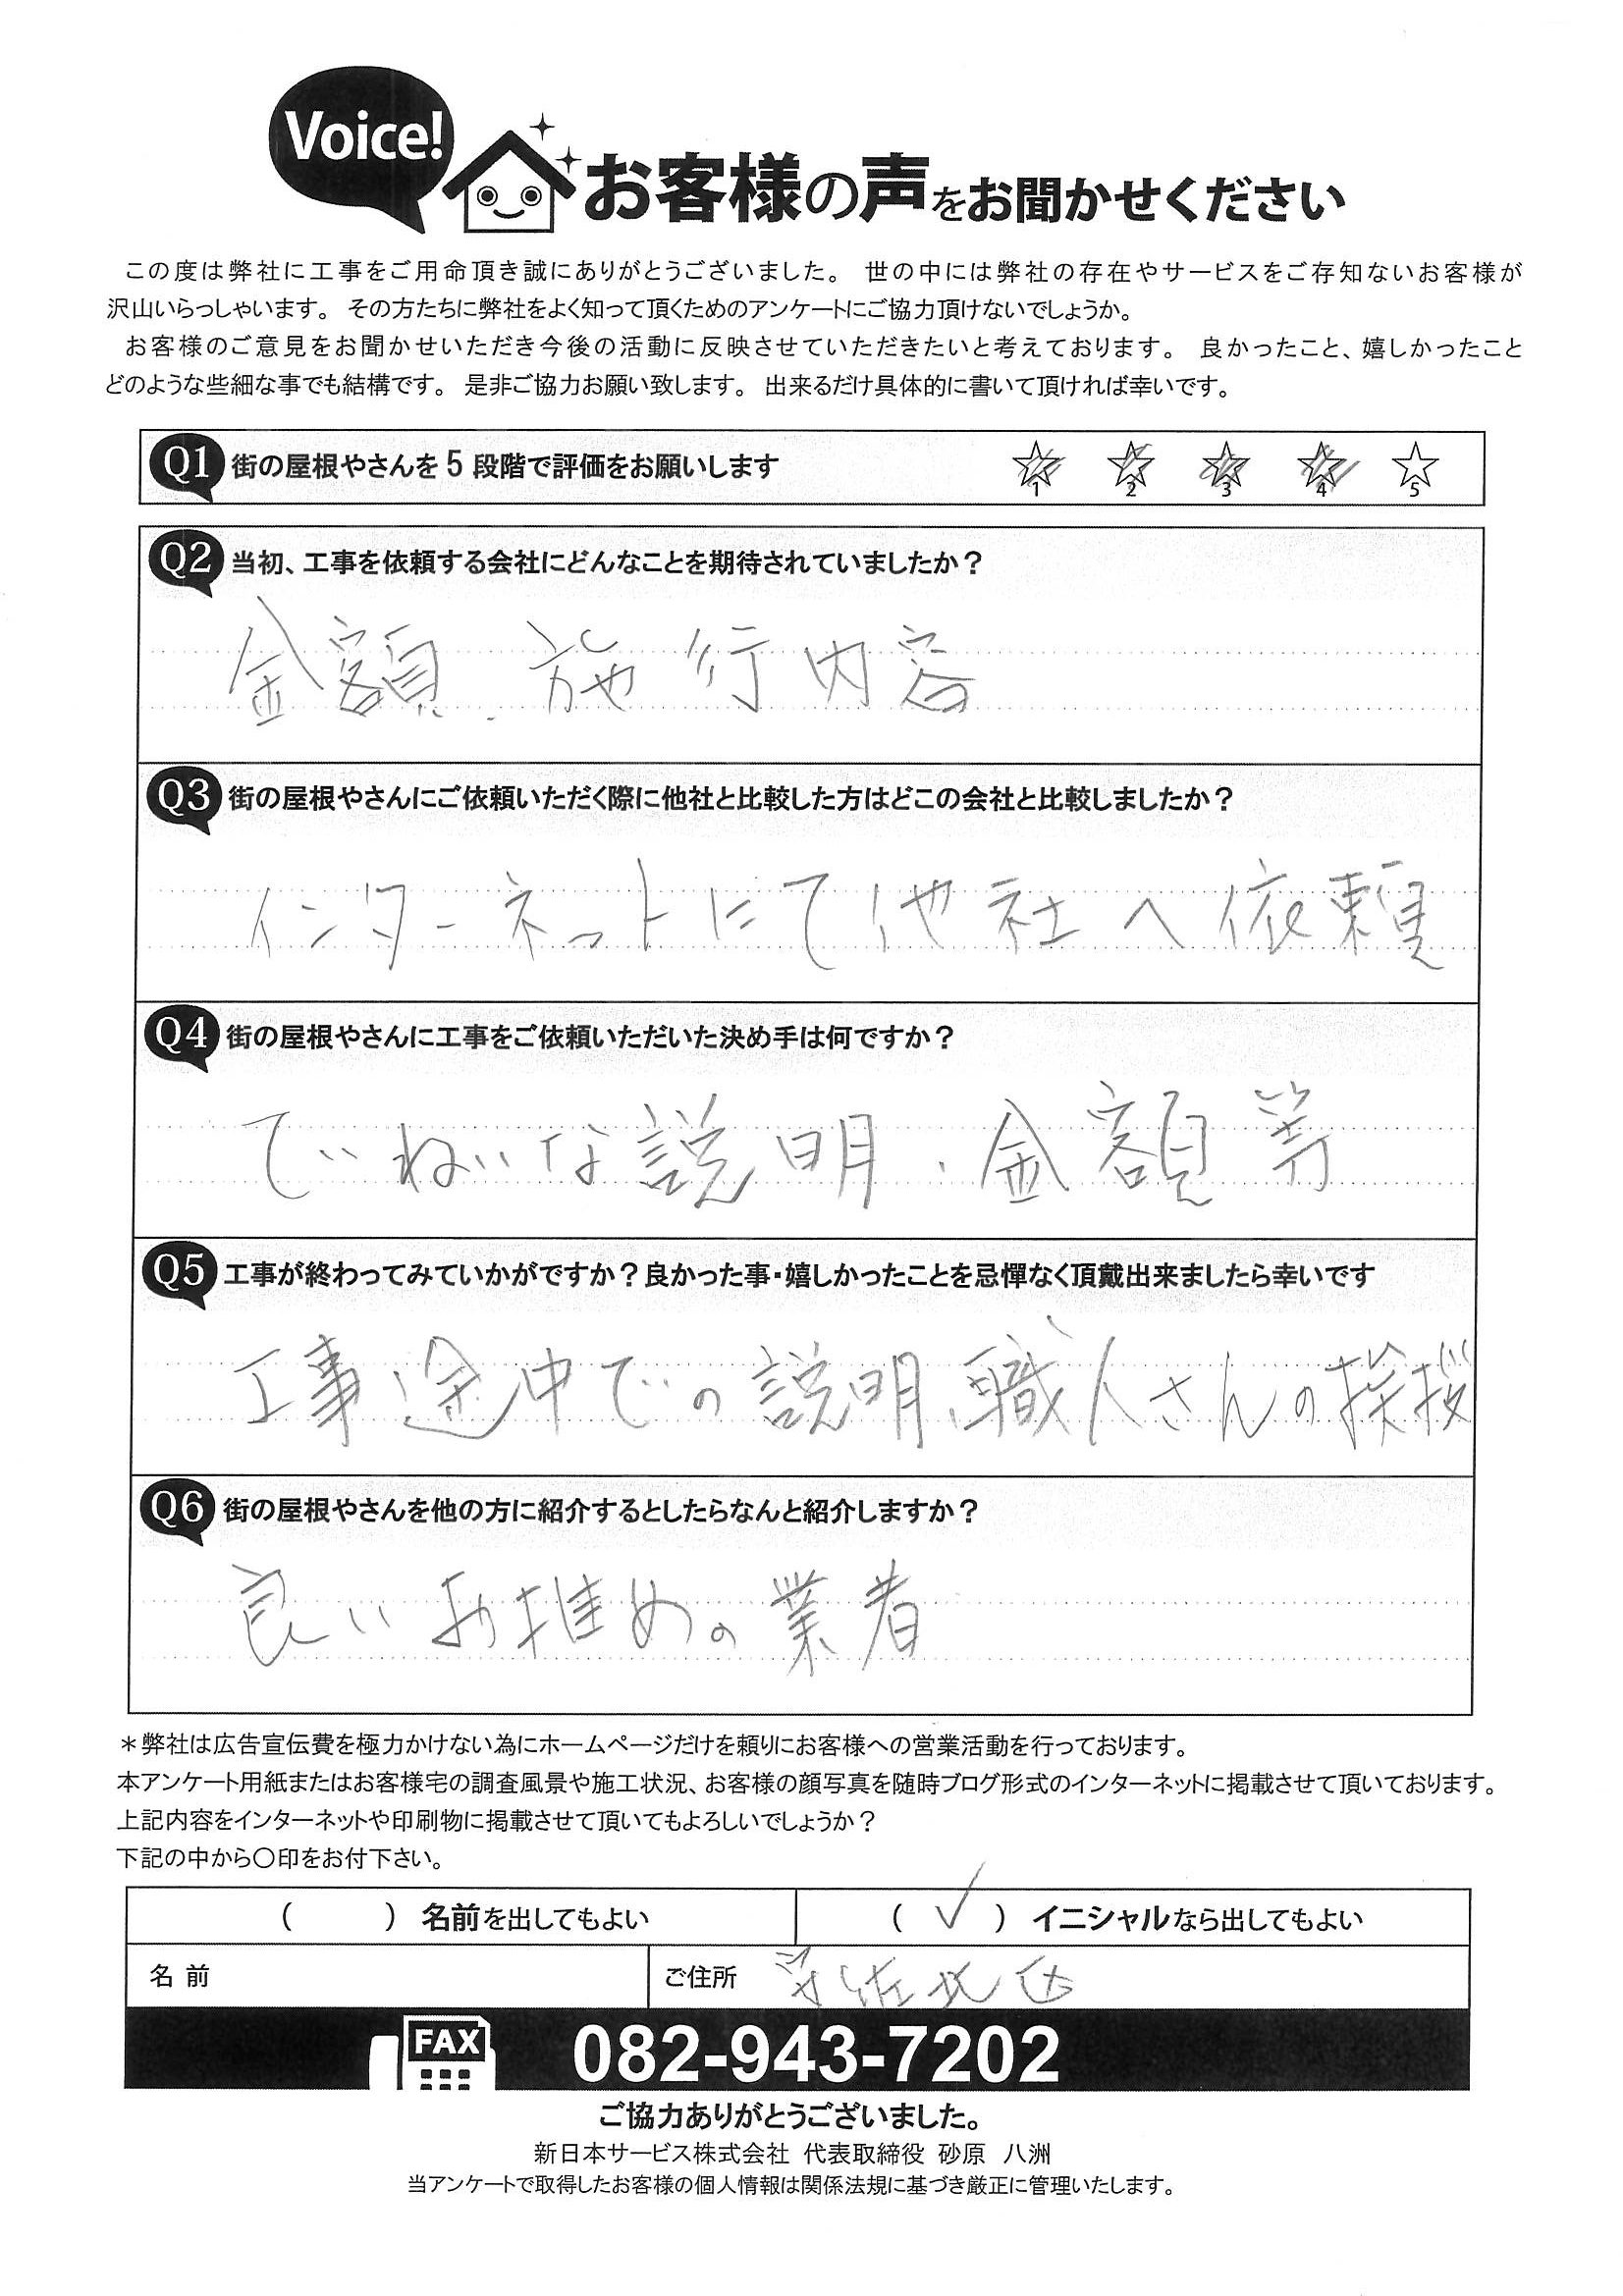 Voice!
お客様の声をお聞かせください
この度は弊社に工事をご用命頂き誠にありがとうございました。 世の中には弊社の存在やサービスをご存知ないお客様が
沢山いらっしゃいます。 その方たちに弊社をよく知って頂くためのアンケートにご協力頂けないでしょうか。
お客様のご意見をお聞かせいただき今後の活動に反映させていただきたいと考えております。 良かったこと、嬉しかったこと
どのような些細な事でも結構です。 是非ご協力お願い致します。 出来るだけ具体的に書いて頂ければ幸いです。
Q1 街の屋根やさんを5段階で評価をお願いします ☆1 ☆2 ☆3 ☆4 ☆5
Q2 当初、工事を依頼する会社にどんなことを期待されていましたか？
金額、施行内容
Q3 街の屋根やさんにご依頼いただく際に他社と比較した方はどこの会社と比較しましたか？
インターネットにて他社へ依頼
Q4 街の屋根やさんに工事をご依頼いただいた決め手は何ですか？
ていねいな説明、金額等
Q5 工事が終わってみていかがですか？良かった事・嬉しかったことを忌憚なく頂戴出来ましたら幸いです
工事途中での説明、職人さんの挨拶
Q6 街の屋根やさんを他の方に紹介するとしたらなんと紹介しますか？
良いお推めの業者
＊弊社は広告宣伝費を極力かけない為にホームページだけを頼りにお客様への営業活動を行っております。
本アンケート用紙またはお客様宅の調査風景や施工状況、お客様の顔写真を随時ブログ形式のインターネットに掲載させて頂いております。
上記内容をインターネットや印刷物に掲載させて頂いてもよろしいでしょうか？
下記の中から〇印をお付下さい。
（　　） 名前を出してもよい （ ✓ ） イニシャルなら出してもよい
名 前 ご住所 安佐北区
FAX 082-943-7202
ご協力ありがとうございました。
新日本サービス株式会社 代表取締役 砂原 八洲
当アンケートで取得したお客様の個人情報は関係法規に基づき厳正に管理いたします。